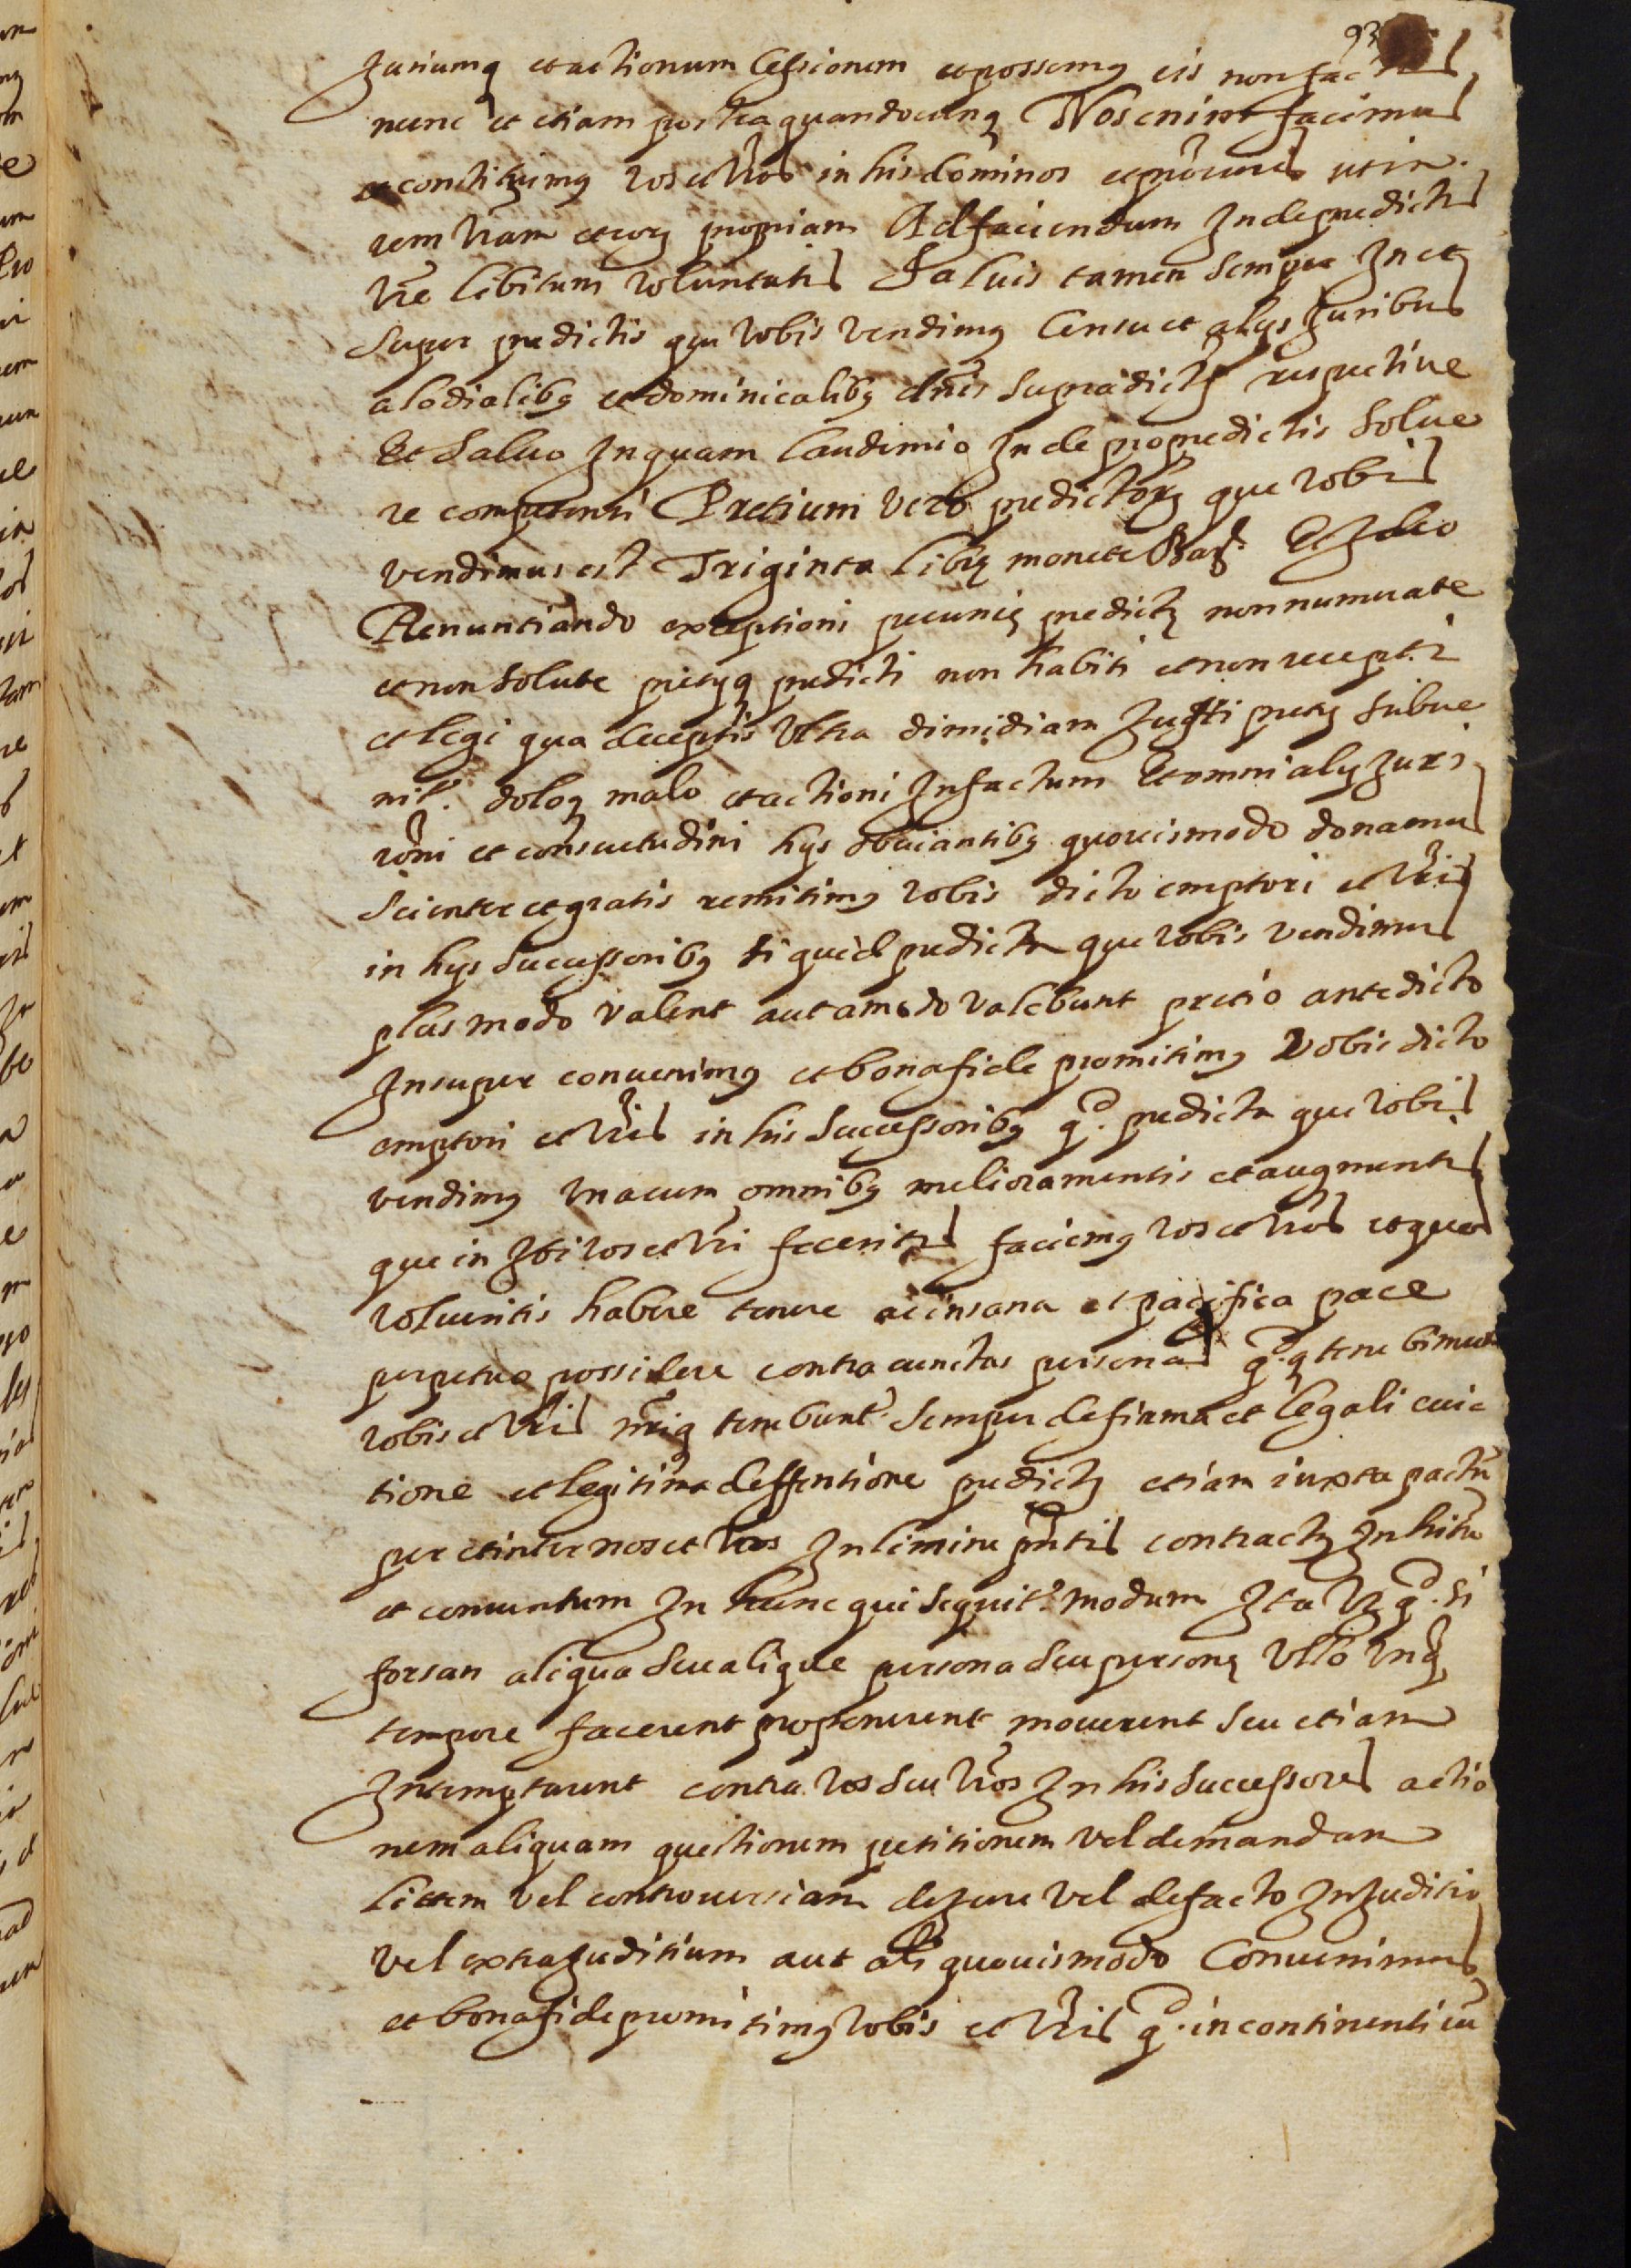 93
Juriumq et actionum Cessionem et possemq eis non fac
nunc et etiam postea quandocunq Nos enim facimus
et constituimq vos et vros in his dominos et procures ut in
rem vram et eorq propriam Ad faciendum Inde predictis
vre libitum voluntatis Saluis tamen semper In et
super predictis que vobis vendimq Censu et alys Juribus
alodialibq et dominicalibq dnis supradictis respective
Et Saluo Inquam laudimio Inde pro predictis solue
re competenti Pretium vero predictorq que vobis
vendimus est Triginta librq monete Barc. Et Ideo
Renuntiando exceptioni pecunie predicte non numerate
et non solute pretyq predicti non habiti et non recepti
et legi qua deceptis ultra dimidiam Justi prety subue
nit. doloq malo et actioni In factum Et omni aly Juri
roni et consuetudini hys obuiantibq quouismodo donamus
scienter et gratis remitimq vobis dicto emptori et vris
in hys successoribq si quid predicta que vobis vendimus
plus modo valent aut amodo valebunt pretio antedicto
Insuper conuenimq et bonafide promitimq Vobis dicto
emptori et vris in his successoribq q. predicta que vobis
vendimq unacum omnibq melioramentis et augmentis
que in Ibi vos et vri feceritis faciemq vos et vros et quos
volueritis habere tenere ac in sana et pacifica pace
perpetuo possidere contra cunctas personas q. q tenebimur
vobis et vris nriq tenebunt. semper de firma et legali euic
tione et legitima deffentione predictq etiam iuxta pactu
per et inter nos et vos In limine pntis contractq Inhitu
et conuentum In hunc qui sequit. modum Ita vz q. si
forsan aliqua seu alique persona seu persone ullo unq
tempore facerent proponerent mouerent seu etiam
Intemptarent contra vos seu vros In his successores actio
nem aliquam questionem petitionem vel demandam
littem vel controuersiam de Jure vel de facto In Juditio
vel extra Juditium aut als quouismodo Conuenimus
et bonafide promitimq vobis et vris q. incontinenti cu